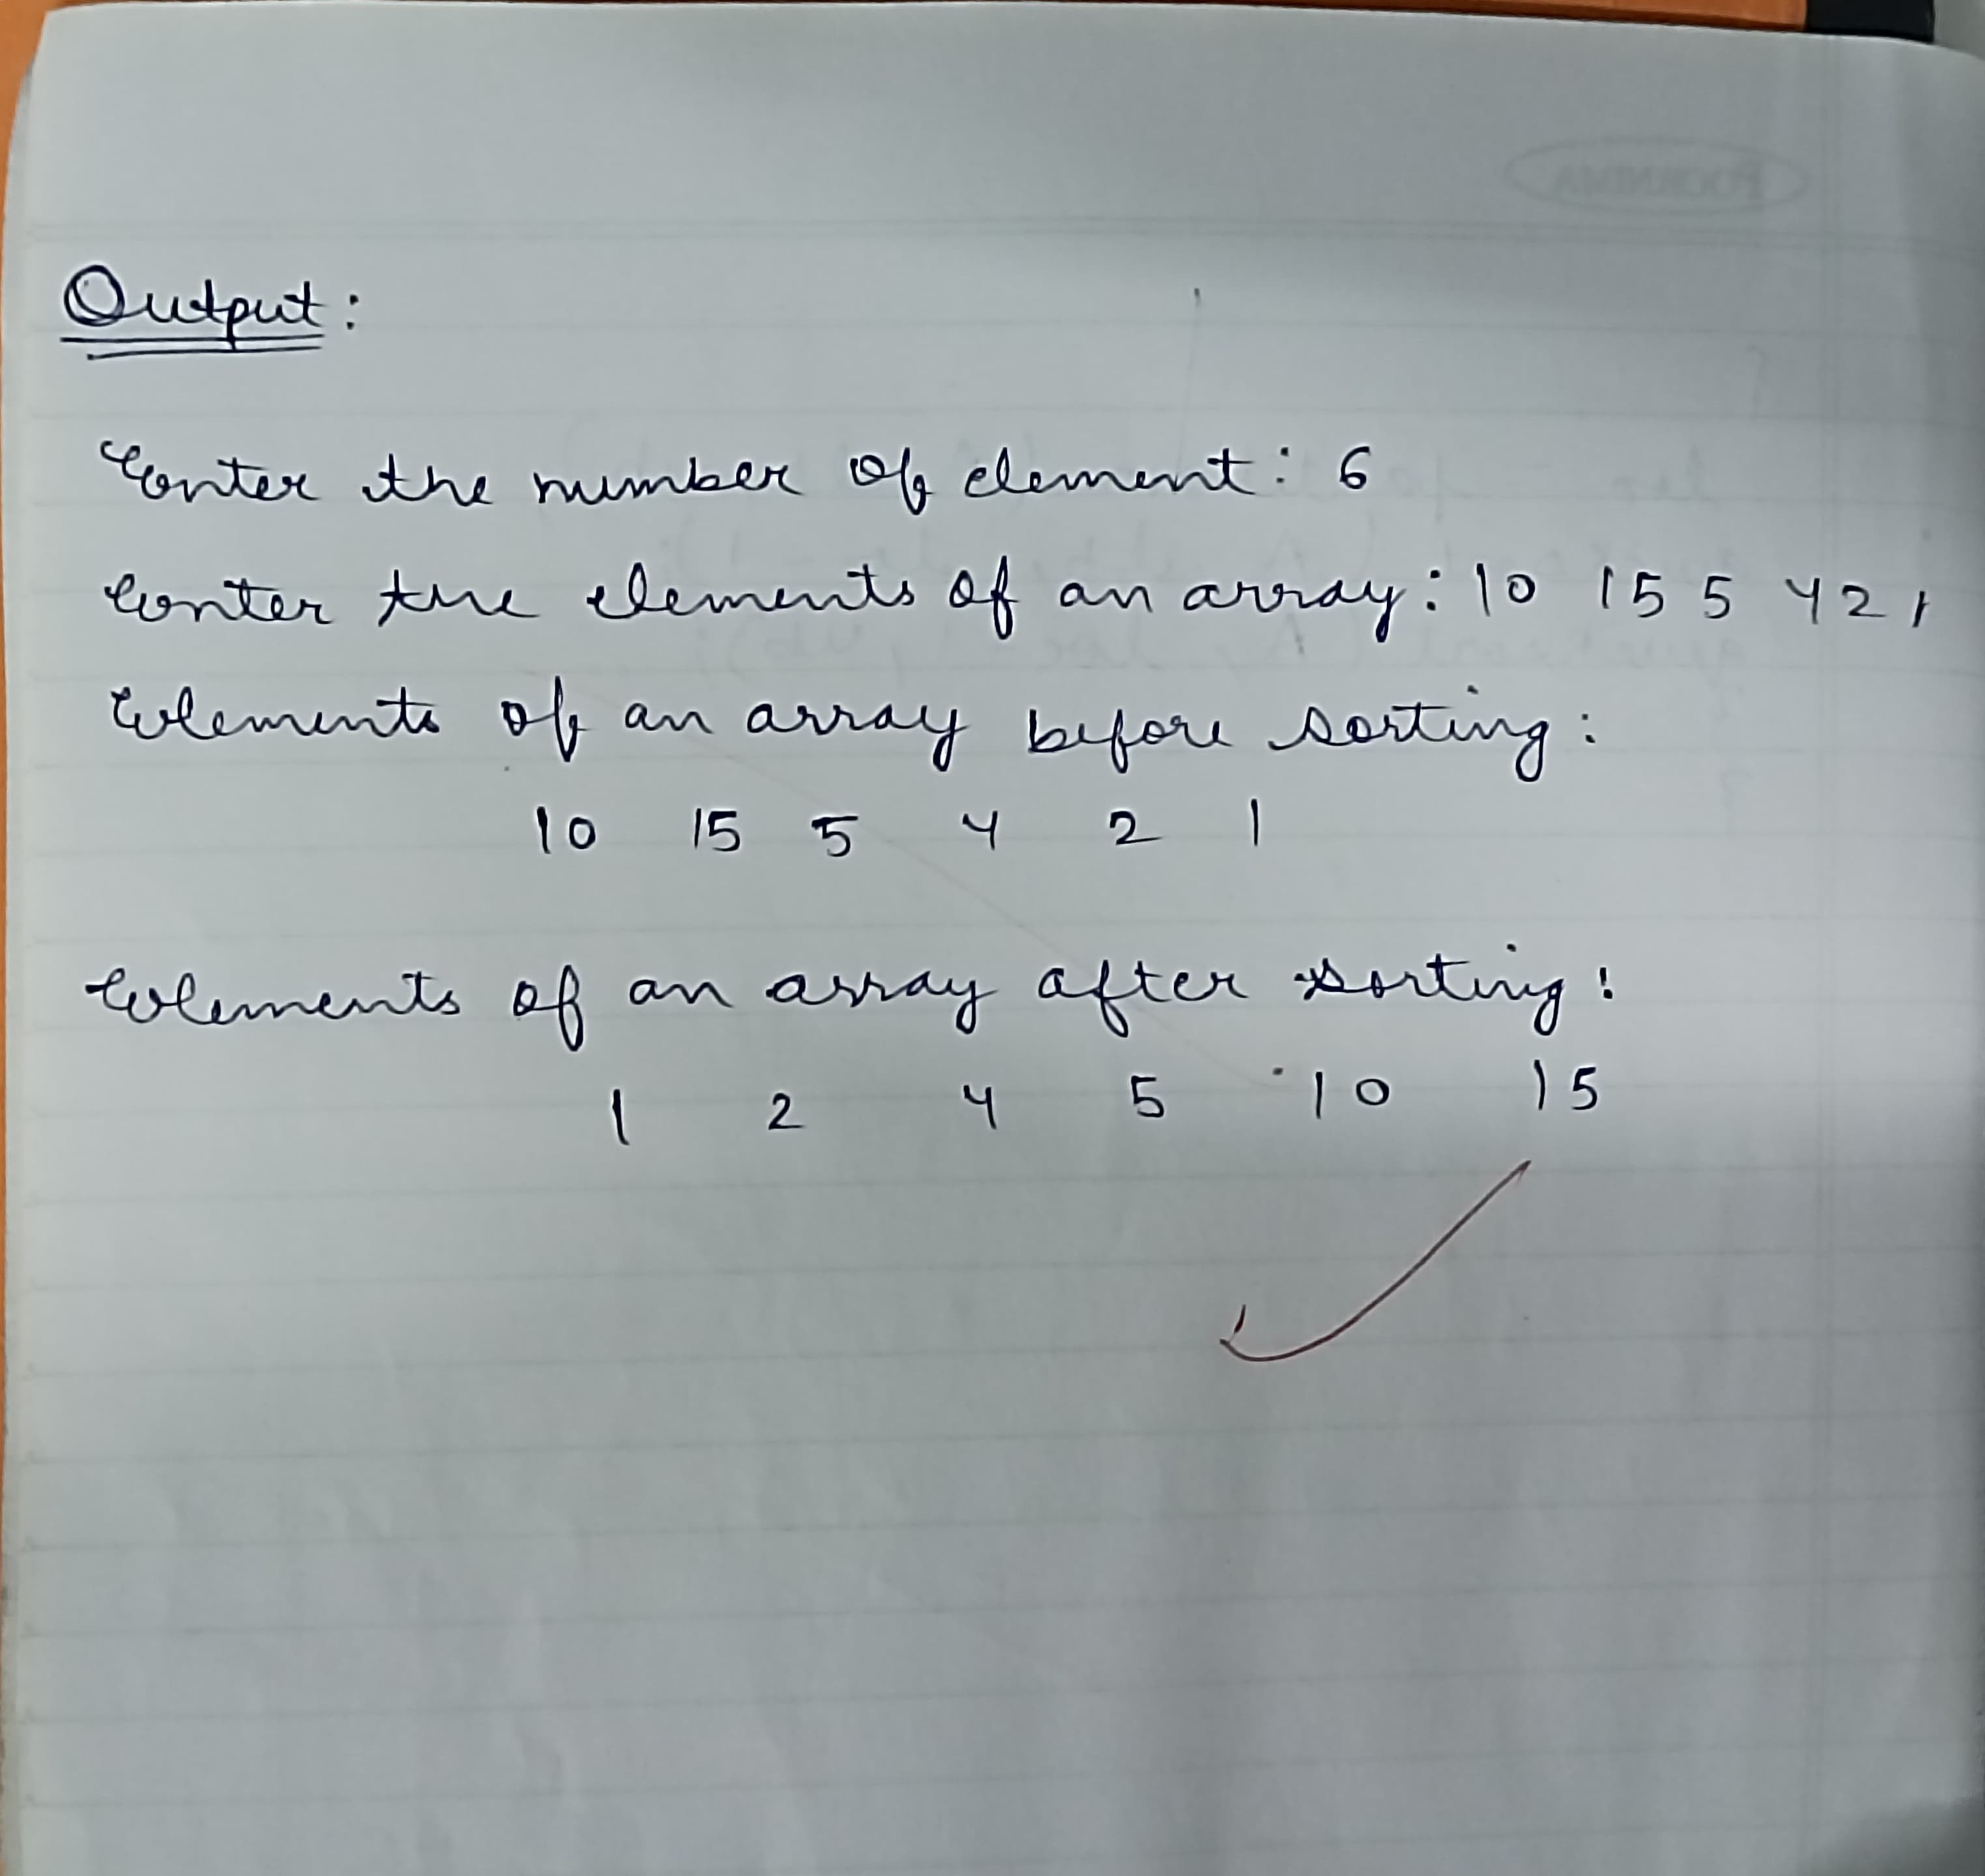 Output:
Enter the number of element: 6
Enter the elements of an array: 10 15 5 4 2 1
Elements of an array before sorting:
10 15 5 4 2 1
Elements of an array after sorting:
1 2 4 5 10 15